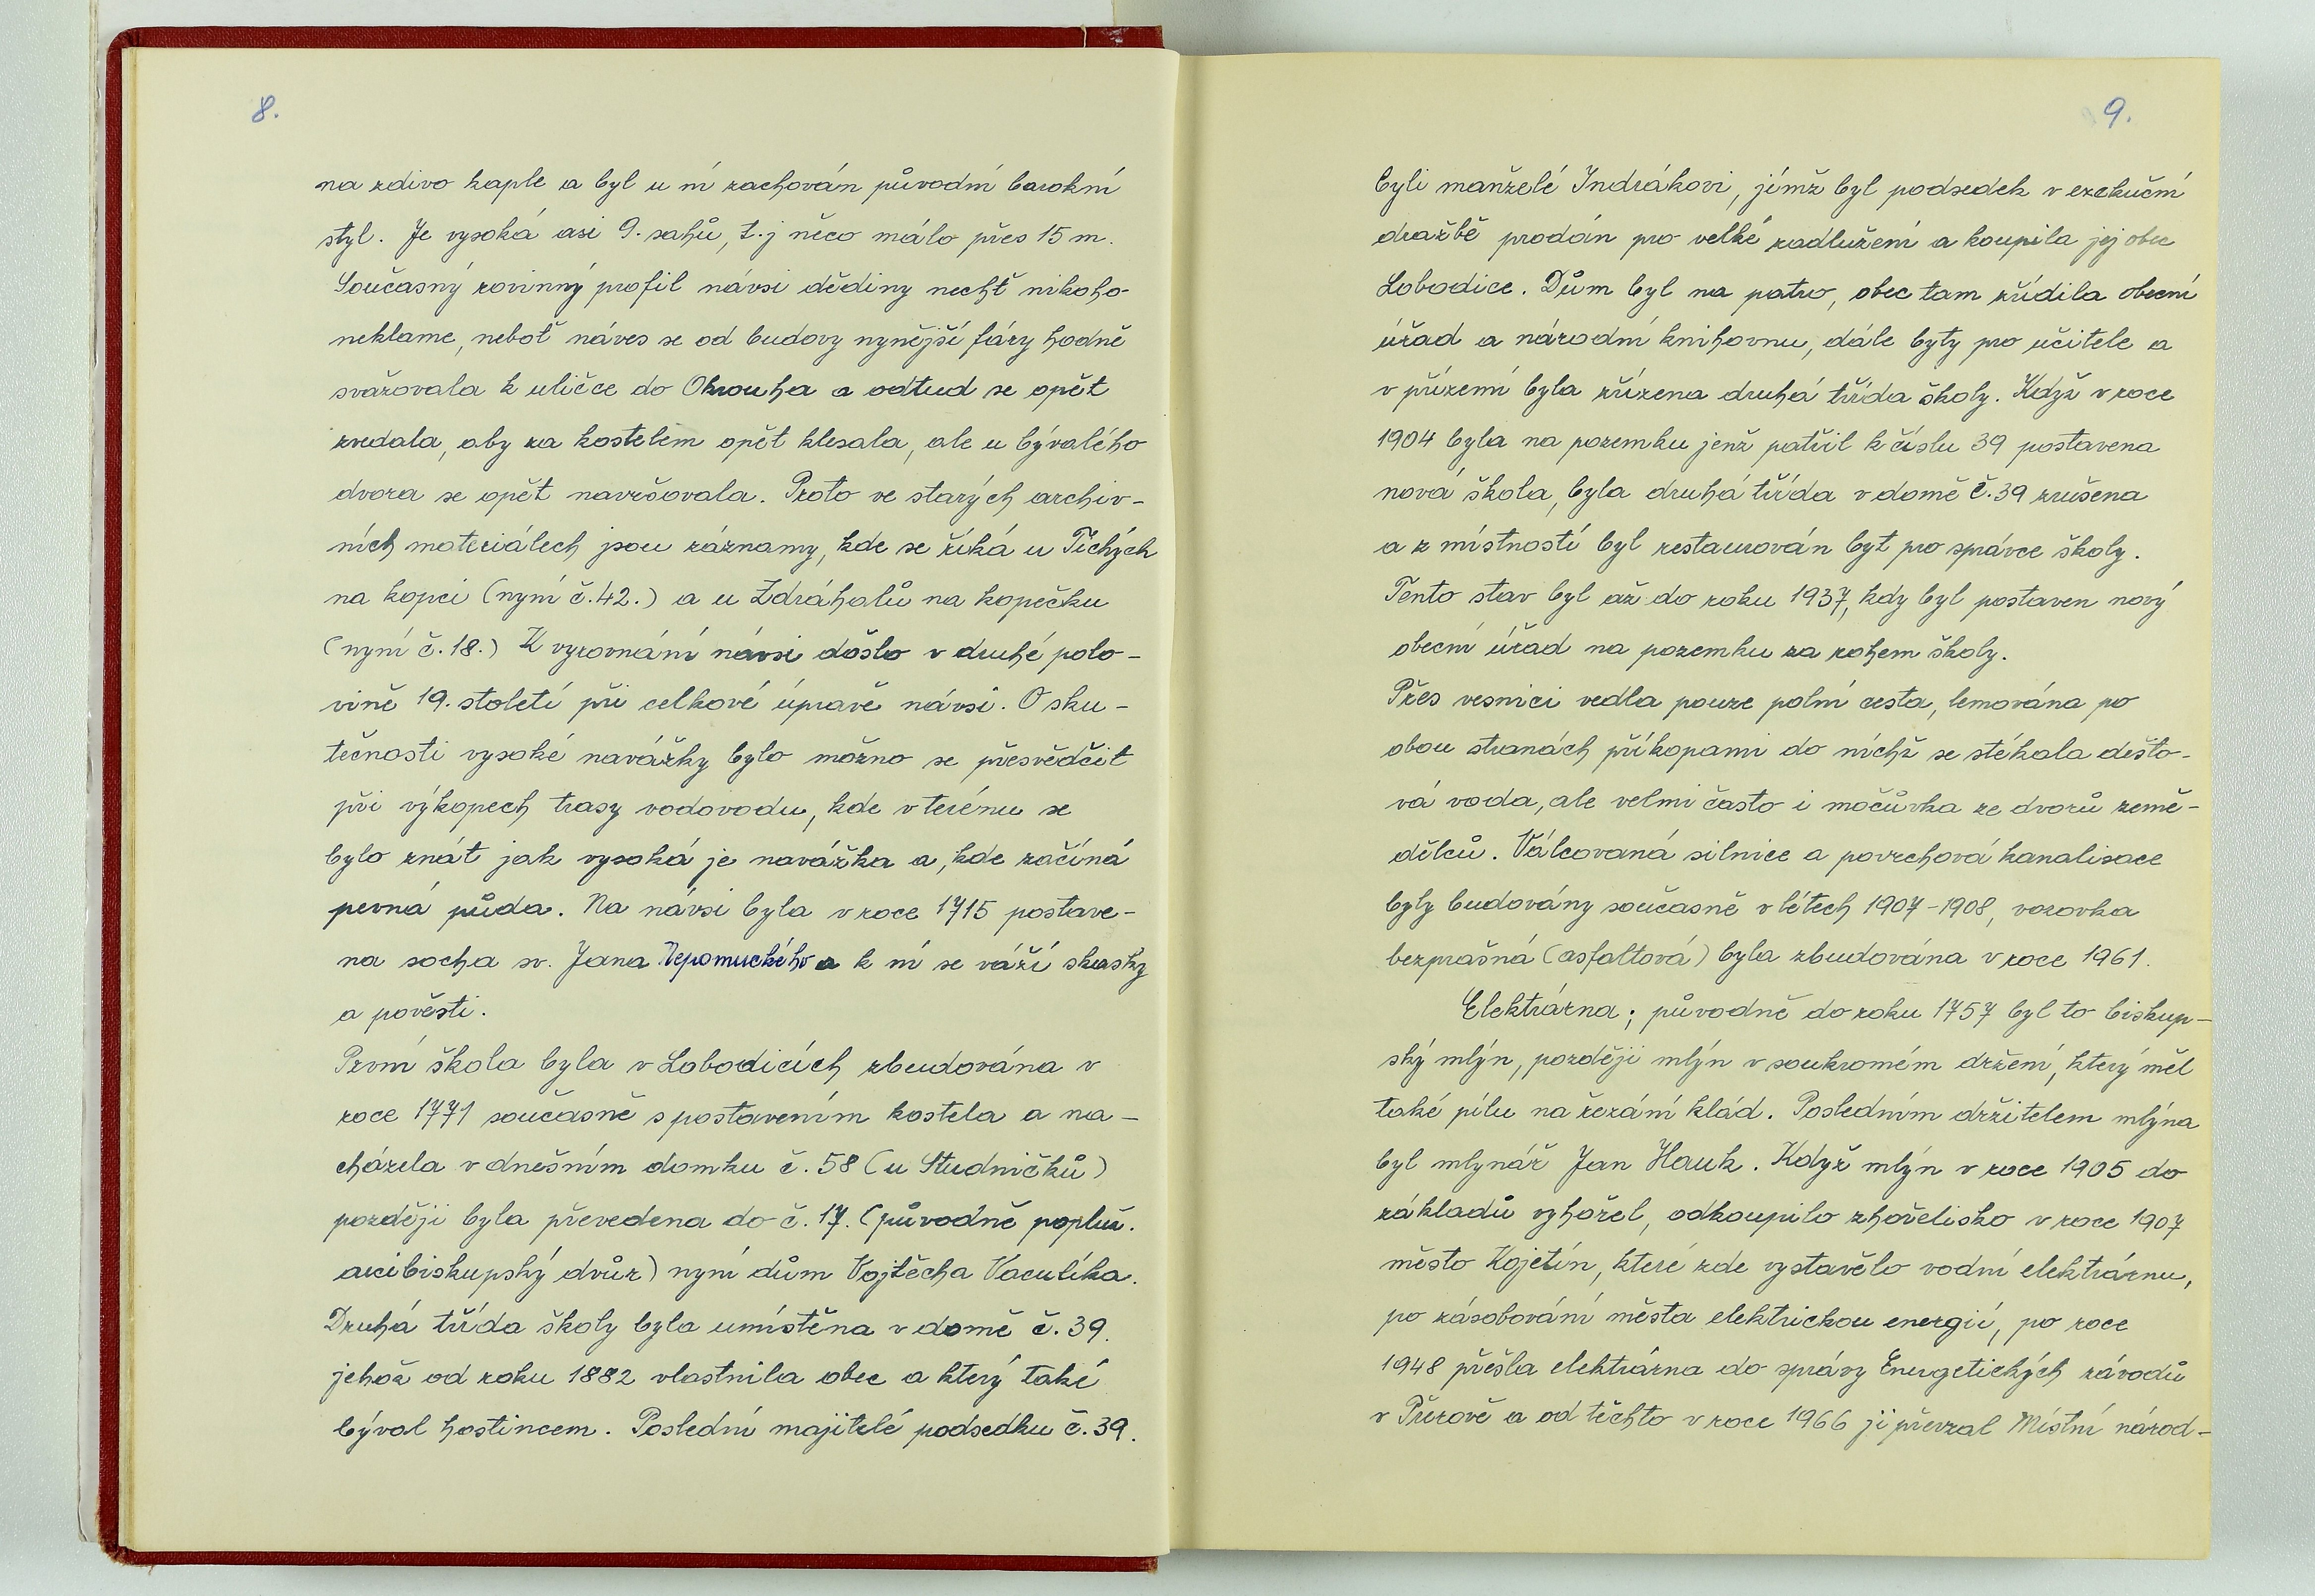 8.
na zdivo kaple a byl u ní zachován původní barokní
styl. Je vysoká asi 9. sahů, t.j něco málo přes 15 m.
Současný rovinný profil návsi dědiny nechť nikoho-
neklame, neboť náves se od budovy nynější fáry hodně
svažovala k uličce do Okrouha a odtud se opět
zvedala, aby za kostelem opět klesala, ale u bývalého
dvora se opět navršovala. Proto ve starých archiv-
ních materiálech jsou záznamy, kde se říká u Tichých
na kopci (nyní č.42.) a u Zdráhalů na kopečku
(nyní č.18.) K vyrovnání návsi došlo v druhé polo-
vině 19. století při celkové úpravě návsi. O sku-
tečnosti vysoké navážky bylo možno se přesvědčit
při výkopech trasy vodovodu, kde v terénu se
bylo znát jak vysoká je navážka a, kde začíná
pevná půda. Na návsi byla v roce 1715 postave-
na socha sv. Jana Nepomuckého a k ní se váží skazky
a pověsti.
První škola byla v Lobodicích zbudována v
roce 1771 současně s postavením kostela a na-
cházela v dnešním domku č. 58 (u Studničků)
později byla převedena do č. 17. (původně popluž.
arcibiskupský dvůr) nyní dům Vojtěcha Vaculíka.
Druhá třída školy byla umístěna v domě č. 39.
jehož od roku 1882 vlastnila obec a který také
býval hostincem. Poslední majitelé podsedku č. 39.
9.
byli manželé Indrákovi, jímž byl podsedek v exekuční
dražbě prodán pro velké zadlužení a koupila jej obec
Lobodice. Dům byl na patro, obec tam zřídila obecní
úřad a národní knihovnu, dále byty pro učitele a
v přízemí byla zřízena druhá třída školy. Když v roce
1904 byla na pozemku jenž patřil k číslu 39 postavena
nová škola, byla druhá třída v domě č.39 zrušena
a z místností byl restaurován byt pro správce školy.
Tento stav byl až do roku 1937, kdy byl postaven nový
obecní úřad na pozemku za rohem školy.
Přes vesnici vedla pouze polní cesta, lemována po
obou stranách příkopami do nichž se stékala dešťo-
vá voda, ale velmi často i močůvka ze dvorů země-
dělců. Válcovaná silnice a povrchová kanalisace
byly budovány současně v létech 1907-1908, vozovka
bezprašná (asfaltová) byla zbudována v roce 1961.
Elektrárna; původně do roku 1757 byl to biskup-
ský mlýn, později mlýn v soukromém držení, který měl
také pilu na řezání klád. Posledním držitelem mlýna
byl mlynář Jan Hauk. Když mlýn v roce 1905 do
základů vyhořel, odkoupilo zhořelisko v roce 1907
město Kojetín, které zde vystavělo vodní elektrárnu,
po zásobování města elektrickou energií, po roce
1948 přešla elektrárna do správy Energetických závodů
v Přerově a od těchto v roce 1966 ji převzal Místní národ-